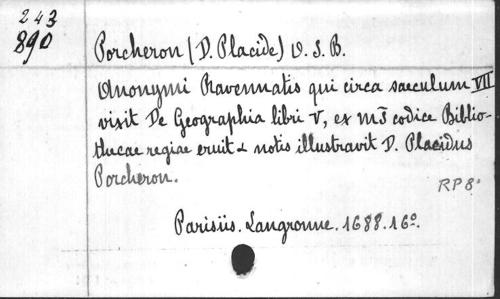 243
890
Porcheron (D. Placide) O. S. B.
Anonymi Ravennatis qui circa saeculum VII
vixit De Geographia libri V, ex mṡ codice Biblio-
thecae regiae eruit & notis illustravit D. Placidus
Porcheron.
RP 8°
Parisiis. Langronne. 1688. 16°.